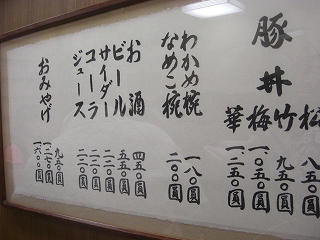 豚丼
松 八五〇圓
竹 九五〇圓
梅 一〇五〇圓
華 一二五〇圓
わかめ椀 一八〇圓
なめこ椀 二〇〇圓
お酒 四五〇圓
ビール 五五〇圓
サイダー 二二〇圓
コーラ 二二〇圓
ジュース 二二〇圓
おみやげ
九五〇圓
一二七〇圓
一六〇〇圓